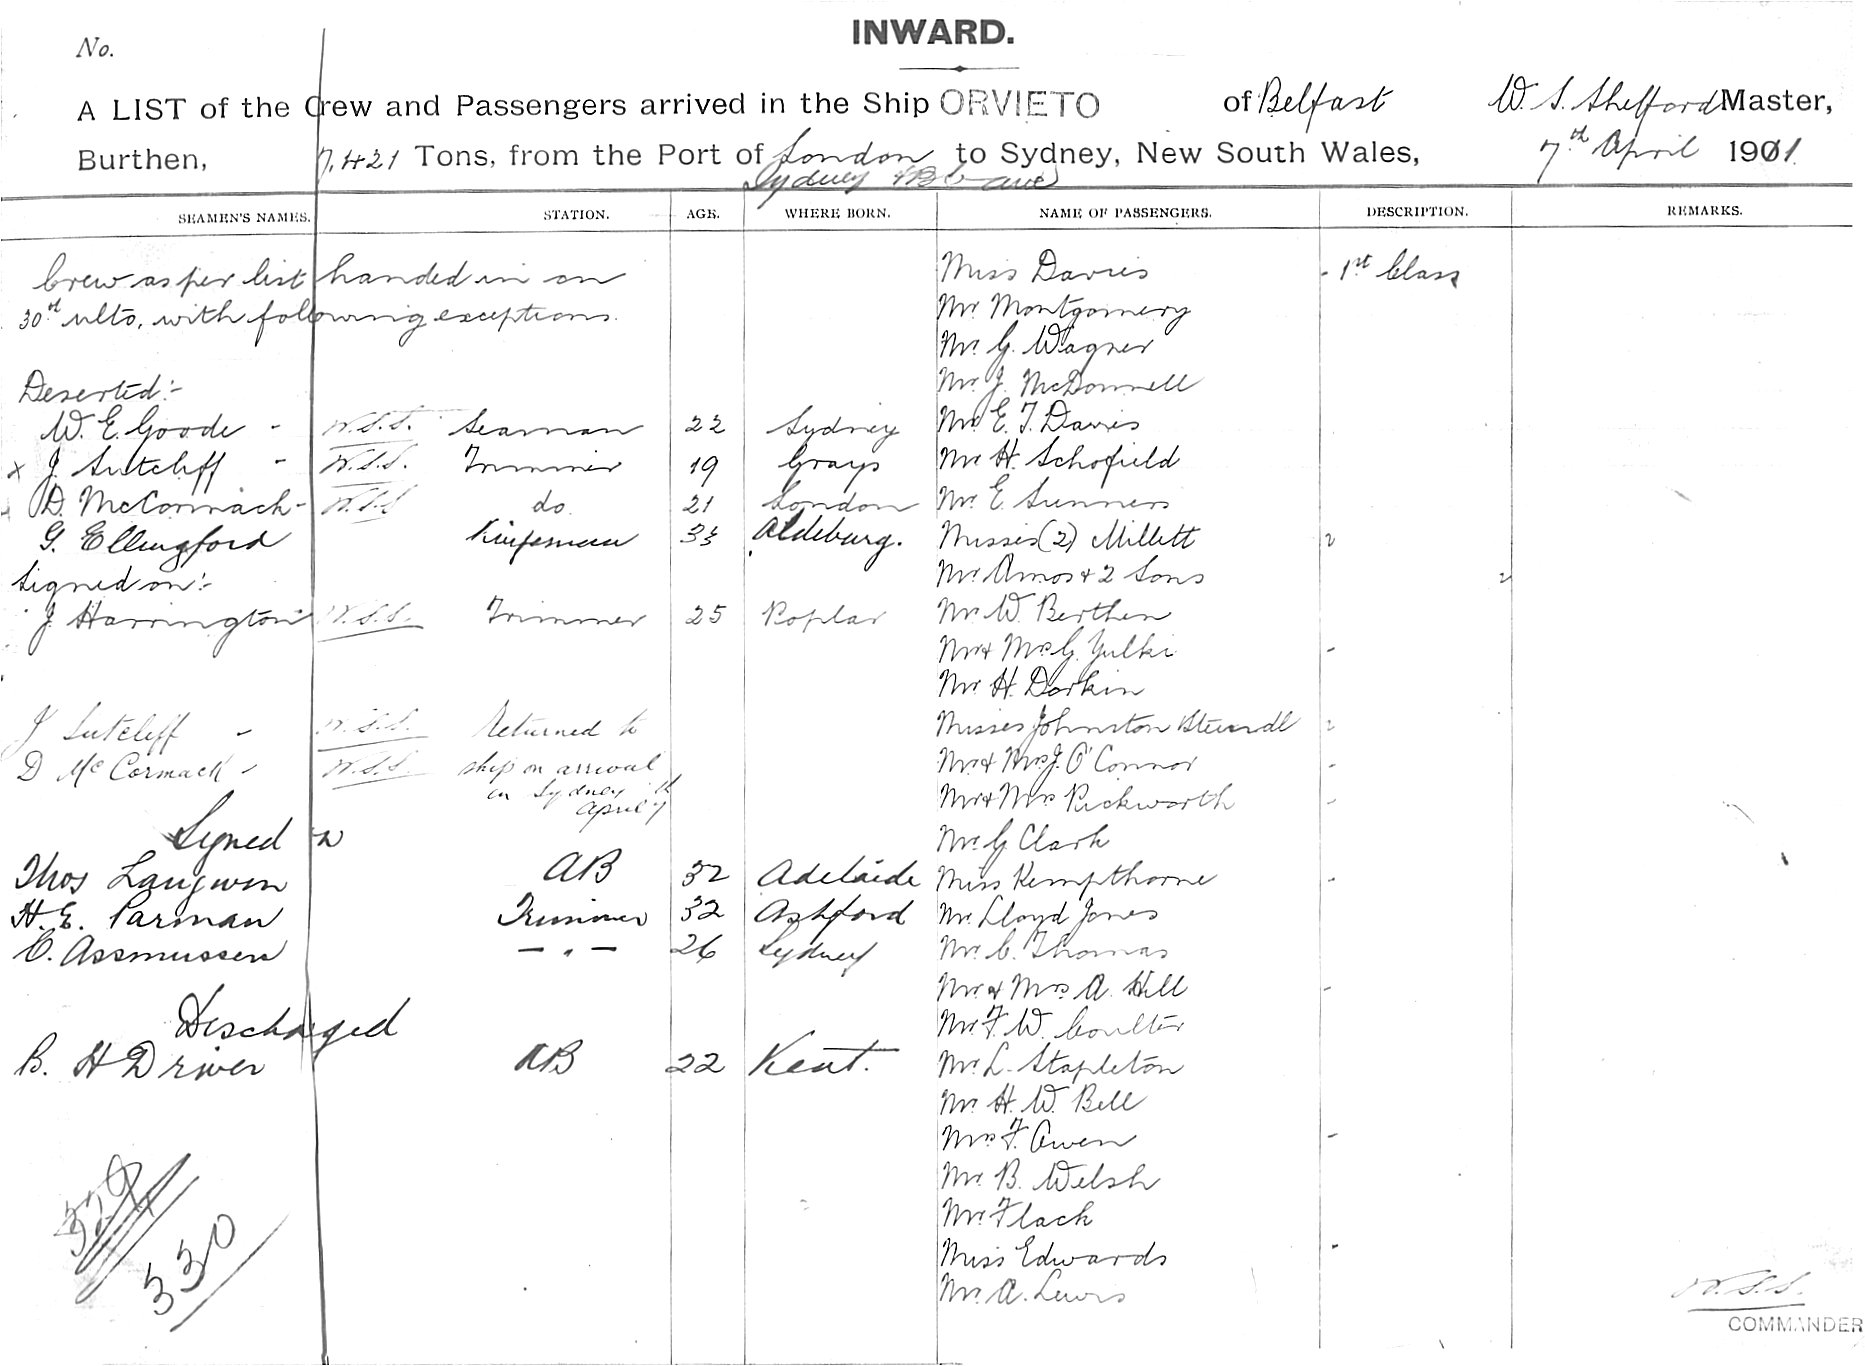 INWARD.
No.
A LIST of the Crew and Passengers arrived in the Ship ORVIETO of Belfast W. S. Shelford Master,
Burthen, 7,421 Tons, from the Port of London to Sydney, New South Wales, 7th April 1901.
Sydney
SEAMEN'S NAMES. STATION. AGE. WHERE BORN. NAME OF PASSENGERS. DESCRIPTION. REMARKS.
Miss Davies - 1st Class
Crew as per list handed in on
Mr Montgomery
30th ulto, with following exceptions.
Mr. G. Wagner
Mr. J. McDonnell
Deserted:-
W. E. Goode - W.S.S. Seaman 22 Sydney Mr. E. T. Davies
x J. Sutcliff - W.S.S. Trimmer 19 Grays Mr. H. Schofield
D. McCormack - W.S.S do. 21 London Mr. E. Sumners
G. Ellingford 33 Aldeburg. Misses (2) Millett 2
Signed on:- Mr. Amos & 2 Sons 2
J. Harrington W.S.S. Trimmer 25 Poplar Mr. W. Berthen
Mr & Mrs G. Yulki -
Mr. H. Dorkin
J Sutcliff - W.S.S. Returned to Misses Johnston 2
D McCormack - W.S.S. ship on arrival Mr & Mrs J. O'Connor -
in Sydney 7th April Mr & Mrs Pickworth -
Signed on Mr. G Clark
Thos Langwin AB 32 Adelaide Miss Kempthorne -
H. E. Parman Trimmer 32 Ashford Mr. Lloyd Jones
C. Assmussen — " — 26 Sydney Mr. C. Thomas
Mr & Mrs A. Hill -
Discharged Mr. F. W. Coulter
B. H Driver AB 22 Kent. Mr. L. Stapleton
Mr. H. W. Bell
Mrs F. Owen -
Mr. B. Welsh
Mr. Flack
329
330
Miss Edwards -
Mr. A. Lewis
W.S.S.
COMMANDER